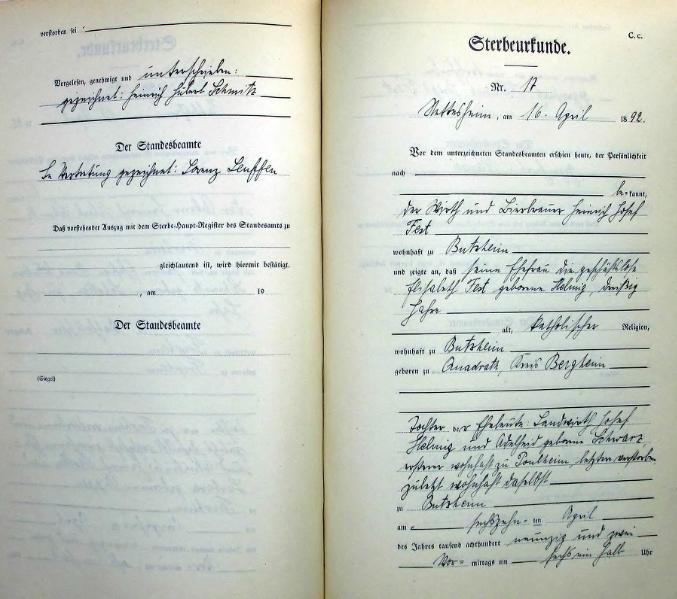 verstorben sei
Vorgelesen, genehmigt und unterschrieben:
gezeichnet: Heinrich Hubert Schmitz
Der Standesbeamte
In Vertretung gezeichnet: Lorenz
Daß vorstehender Auszug mit dem Sterbe-Haupt-Register des Standesamts zu
gleichlautend ist, wird hiermit bestätigt.
, am 19
Der Standesbeamte
(Siegel)
C. c.
Sterbeurkunde.
Nr. 17
Nettesheim, am 16. April 1892.
Vor dem unterzeichneten Standesbeamten erschien heute, der Persönlichkeit
nach
bekannt,
der Wirth und Bierbrauer Heinrich Josef
Fest
wohnhaft zu Butzheim
und zeigte an, daß seine Ehefrau die geschäftslose
Elisabeth Fest geborene Helmig, dreißig
Jahre
alt, katholischer Religion,
wohnhaft zu Butzheim
geboren zu Quadrath, Kreis Bergheim
Tochter der Eheleute: Landwirth Josef
Helmig und Adelheid geborene Schwarz,
ersterer wohnhaft zu Poulheim, letztere verstorben
zuletzt wohnhaft daselbst
zu Butzheim
am sechszehn ten April
des Jahres tausend achthundert neunzig und zwei
Vor= mittags um sechs ein halb Uhr